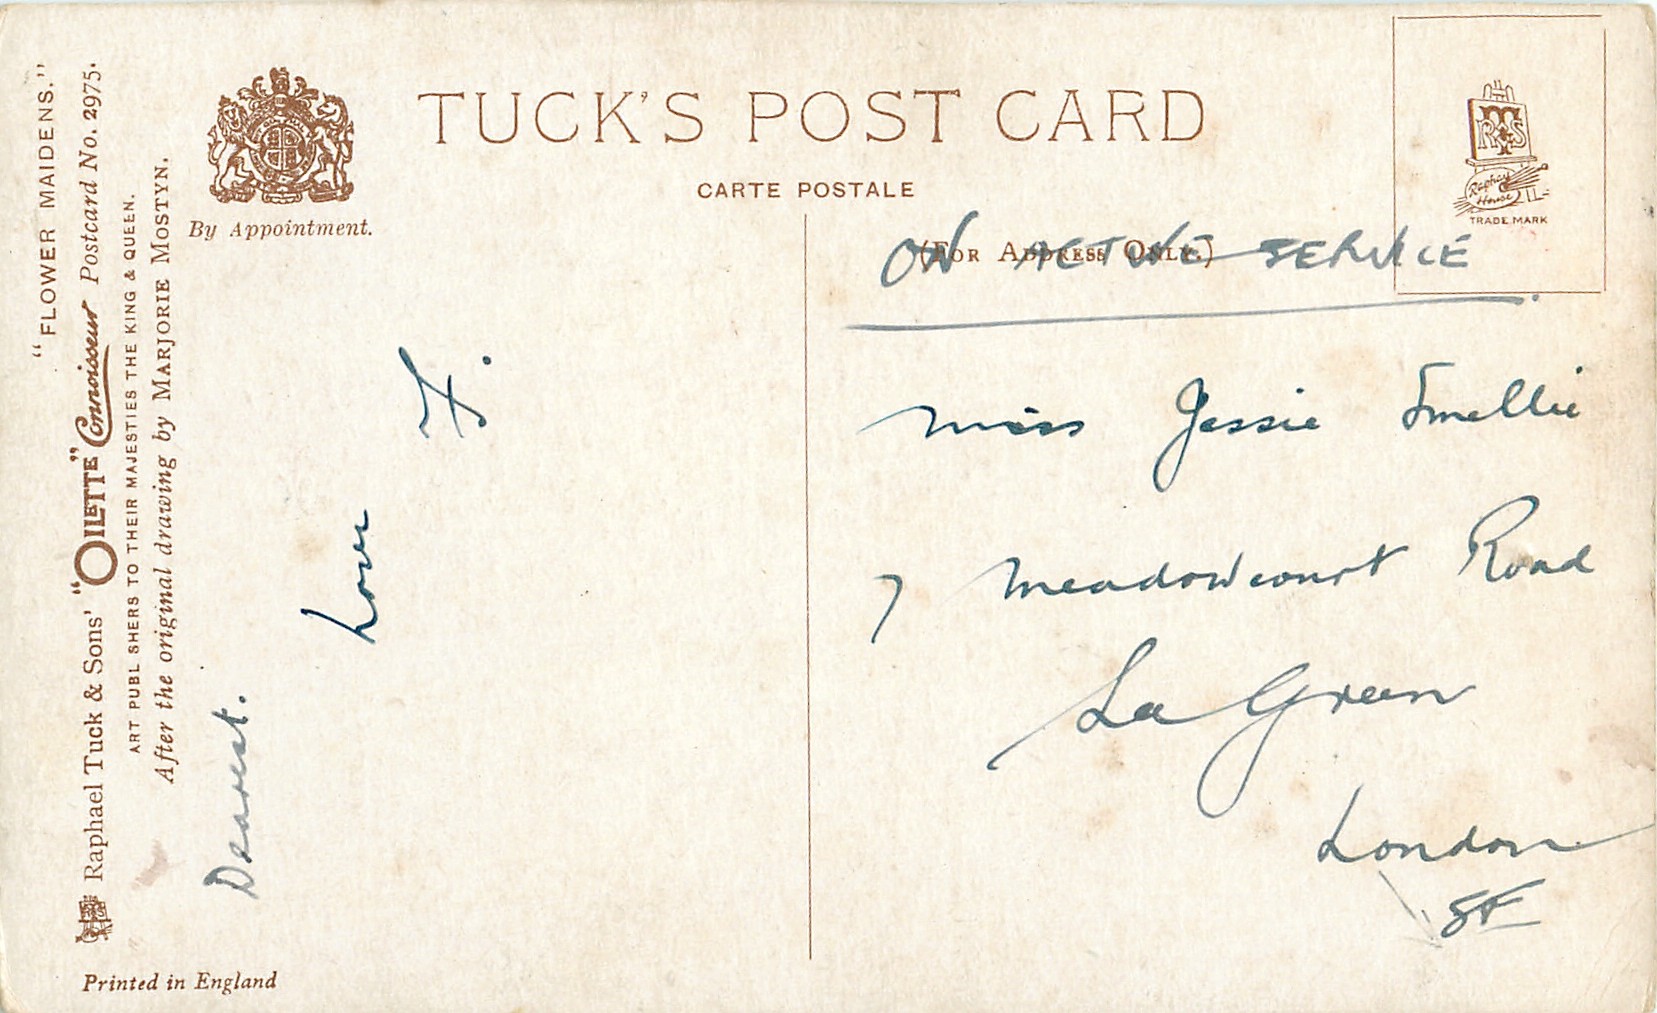 "FLOWER MAIDENS."
Raphael Tuck & Sons' "OILETTE" Connoisseur Postcard No. 2975.
ART PUBL SHERS TO THEIR MAJESTIES THE KING & QUEEN.
After the original drawing by MARJORIE MOSTYN.
By Appointment.
TUCK'S POST CARD
CARTE POSTALE
(FOR ADDRESS ONLY.)
RTS
Raphael
House
TRADE MARK
ON ACTIVE SERVICE
Dearest.
Love
F.
Miss Jessie Smellie
7 Meadowcourt Road
La Green
London
SE
Printed in England